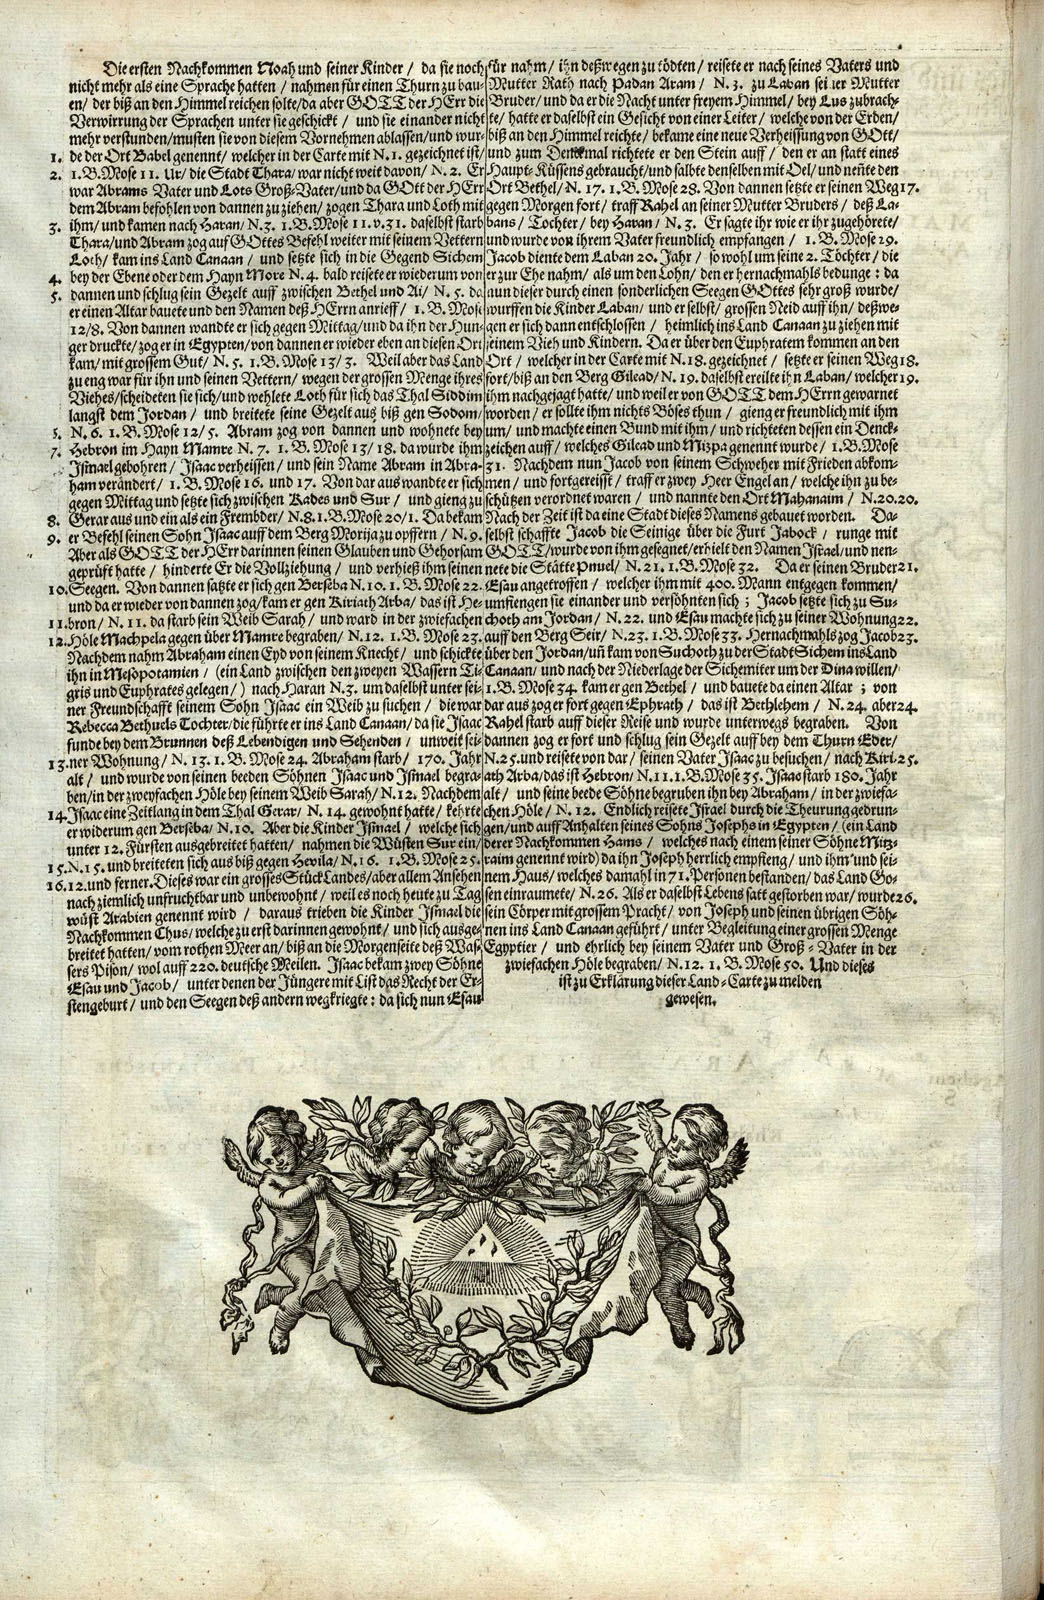 Die ersten Nachkommen Noah und seiner Kinder / da sie noch
nicht mehr als eine Sprache hatten / nahmen für einen Thurn zu bau-
en / der biß an den Himmel reichen solte / da aber GOTT der HErr die
Verwirrung der Sprachen unter sie geschickt / und sie einander nicht
mehr verstunden / musten sie von diesem Vornehmen ablassen / und wur-
1. de der Ort Babel genennt / welcher in der Carte mit N. 1. gezeichnet ist /
2. 1. B. Mose 11. Ur / die Stadt Thara / war nicht weit davon / N. 2. Er
war Abrams Vater und Lots Groß-Vater / und da GOtt der HErr
dem Abram befohlen von dannen zu ziehen / zogen Thara und Loth mit
3. ihm / und kamen nach Haran / N. 3. 1. B. Mose 11. v. 31. daselbst starb
Thara / und Abram zog auf GOttes Befehl weiter mit seinem Vettern
Loth / kam ins Land Canaan / und setzte sich in die Gegend Sichem
4. bey der Ebene oder dem Hayn More N. 4. bald reisete er wiederum von
5. dannen und schlug sein Gezelt auff zwischen Bethel und Ai / N. 5. da
er einen Altar bauete und den Namen deß HErrn anrieff / 1. B. Mose
12 / 8. Von dannen wandte er sich gegen Mittag / und da ihn der Hun-
ger druckte / zog er in Egypten / von dannen er wieder eben an diesen Ort
kam / mit grossem Gut / N. 5. 1. B. Mose 13 / 3. Weil aber das Land
zu eng war für ihn und seinen Vettern / wegen der grossen Menge ihres
Viehes / scheideten sie sich / und wehlete Loth für sich das Thal Siddim
langst dem Jordan / und breitete seine Gezelt aus biß gen Sodom /
5. N. 6. 1. B. Mose 12 / 5. Abram zog von dannen und wohnete bey
7. Hebron im Hayn Mamre N. 7. 1. B. Mose 13 / 18. da wurde ihm
Ismael gebohren / Isaac verheissen / und sein Name Abram in Abra-
ham verändert / 1. B. Mose 16. und 17. Von dar aus wandte er sich
gegen Mittag und setzte sich zwischen Kades und Sur / und gieng zu
8. Gerar aus und ein als ein Frembder / N. 8. 1. B. Mose 20 / 1. Da bekam
9. er Befehl seinen Sohn Isaac auff dem Berg Morija zu opffern / N. 9.
Aber als GOTT der HErr darinnen seinen Glauben und Gehorsam
geprüft hatte / hinderte Er die Vollziehung / und verhieß ihm seinen
10. Seegen. Von dannen satzte er sich gen Berseba N. 10. 1. B. Mose 22.
und da er wieder von dannen zog / kam er gen Kiriath Arba / das ist He-
11. bron / N. 11. da starb sein Weib Sarah / und ward in der zwiefachen
12. Höle Machpela gegen über Mamre begraben / N. 12. 1. B. Mose 23.
Nachdem nahm Abraham einen Eyd von seinem Knecht / und schickte
ihn in Mesopotamien / (ein Land zwischen den zweyen Wassern Ti-
gris und Euphrates gelegen /) nach Haran N. 3. um daselbst unter sei-
ner Freundschafft seinem Sohn Isaac ein Weib zu suchen / die war
Rebecca Bethuels Tochter / die führte er ins Land Canaan / da sie Isaac
funde bey dem Brunnen deß Lebendigen und Sehenden / unweit sei-
13. ner Wohnung / N. 13. 1. B. Mose 24. Abraham starb / 170. Jahr
alt / und wurde von seinen beeden Söhnen Isaac und Ismael begra-
ben / in der zweyfachen Höle bey seinem Weib Sarah / N. 12. Nachdem
14. Isaac eine Zeitlang in dem Thal Gerar / N. 14. gewohnt hatte / kehrte
er widerum gen Berseba / N. 10. Aber die Kinder Ismael / welche sich
unter 12. Fürsten ausgebreitet hatten / nahmen die Wüsten Sur ein /
15. N. 15. und breiteten sich aus biß gegen Hevila / N. 16. 1. B. Mose 25.
16. 12. und ferner. Dieses war ein grosses Stück Landes / aber allem Ansehen
nach ziemlich unfruchtbar und unbewohnt / weil es noch heute zu Tag
wüst Arabien genennt wird / daraus trieben die Kinder Ismael die
Nachkommen Chus / welche zu erst darinnen gewohnt / und sich ausge-
breitet hatten / vom rothen Meer an / biß an die Morgenseite deß Was-
sers Pison / wol auff 220. deutsche Meilen. Isaac bekam zwey Söhne
Esau und Jacob / unter denen der Jüngere mit List das Recht der Er-
stengeburt / und den Seegen deß andern wegkriegte : da sich nun Esau
für nahm / ihn deßwegen zu tödten / reisete er nach seines Vaters und
Mutter Rath nach Padan Aram / N. 3. zu Laban seiner Mutter
Bruder / und da er die Nacht unter freyem Himmel / bey Lus zubrach-
te / hatte er daselbst ein Gesicht von einer Leiter / welche von der Erden /
biß an den Himmel reichte / bekame eine neue Verheissung von GOtt /
und zum Denckmal richtete er den Stein auff / den er an statt eines
Haupt-Küssens gebraucht / und salbte denselben mit Oel / und neñte den
Ort Bethel / N. 17. 1. B. Mose 28. Von dannen setzte er seinen Weg 17.
gegen Morgen fort / traff Rahel an seiner Mutter Bruders / deß La-
bans / Tochter / bey Haran / N. 3. Er sagte ihr wie er ihr zugehörete /
und wurde von ihrem Vater freundlich empfangen / 1. B. Mose 29.
Jacob diente dem Laban 20. Jahr / so wohl um seine 2. Töchter / die
er zur Ehe nahm / als um den Lohn / den er hernachmals bedunge : da
nun dieser durch einen sonderlichen Seegen GOttes sehr groß wurde /
wurffen die Kinder Laban / und er selbst / grossen Neid auff ihn / deßwe-
gen er sich dann entschlossen / heimlich ins Land Canaan zu ziehen mit
seinem Vieh und Kindern. Da er über den Euphratem kommen an den
Ort / welcher in der Carte mit N. 18. gezeichnet / setzte er seinen Weg 18.
fort / biß an den Berg Gilead / N. 19. daselbst ereilte ihn Laban / welcher 19.
ihm nachgejagt hatte / und weil er von GOTT dem HErrn gewarnet
worden / er sollte ihm nichts Böses thun / gieng er freundlich mit ihm
um / und machte einen Bund mit ihm / und richteten dessen ein Denck-
zeichen auff / welches Gilead und Mizpa genennt wurde / 1. B. Mose
31. Nachdem nun Jacob von seinem Schweher mit Frieden abkom-
men / und fortgereisst / traff er zwey Heer Engel an / welche ihn zu be-
schützen verordnet waren / und nannte den Ort Mahanaim / N. 20. 20.
Nach der Zeit ist da eine Stadt dieses Namens gebauet worden. Da-
selbst schaffte Jacob die Seinige über die Furt Jabock / runge mit
GOTT / wurde von ihm gesegnet / erhielt den Namen Israel / und nen-
nete die Stätte Pnuel / N. 21. 1. B. Mose 32. Da er seinen Bruder 21.
Esau angetroffen / welcher ihm mit 400. Mann entgegen kommen /
umfiengen sie einander und versöhnten sich ; Jacob setzte sich zu Su-
choth am Jordan / N. 22. und Esau machte sich zu seiner Wohnung 22.
auff den Berg Seir / N. 23. 1. B. Mose 33. Hernachmahls zog Jacob 23.
über den Jordan / uñ kam von Suchoth zu der Stadt Sichem ins Land
Canaan / und nach der Niederlage der Sichemiter um der Dina willen /
1. B. Mose 34. kam er gen Bethel / und bauete da einen Altar ; von
dar aus zog er fort gegen Ephrath / das ist Bethlehem / N. 24. aber 24.
Rahel starb auff dieser Reise und wurde unterwegs begraben. Von
dannen zog er fort und schlug sein Gezelt auff bey dem Thurn Eder /
N. 25. und reisete von dar / seinen Vater Isaac zu besuchen / nach Kiri- 25.
ath Arba / das ist Hebron / N. 11. 1. B. Mose 35. Isaac starb 180. Jahr
alt / und seine beede Söhne begruben ihn bey Abraham / in der zwiefa-
chen Höle / N. 12. Endlich reisete Israel durch die Theurung gedrun-
gen / und auff Anhalten seines Sohns Josephs in Egypten / (ein Land
derer Nachkommen Hams / welches nach einem seiner Söhne Mitz-
raim genennt wird) da ihn Joseph herrlich empfieng / und ihm und sei-
nem Haus / welches damahl in 71. Personen bestanden / das Land Go-
sen einraumete / N. 26. Als er daselbst Lebens satt gestorben war / wurde 26.
sein Cörper mit grossem Pracht / von Joseph und seinen übrigen Söh-
nen ins Land Canaan geführt / unter Begleitung einer grossen Menge
Egyptier / und ehrlich bey seinem Vater und Groß-Vater in der
zwiefachen Höle begraben / N. 12. 1. B. Mose 50. Und dieses
ist zu Erklärung dieser Land-Carte zu melden
gewesen.